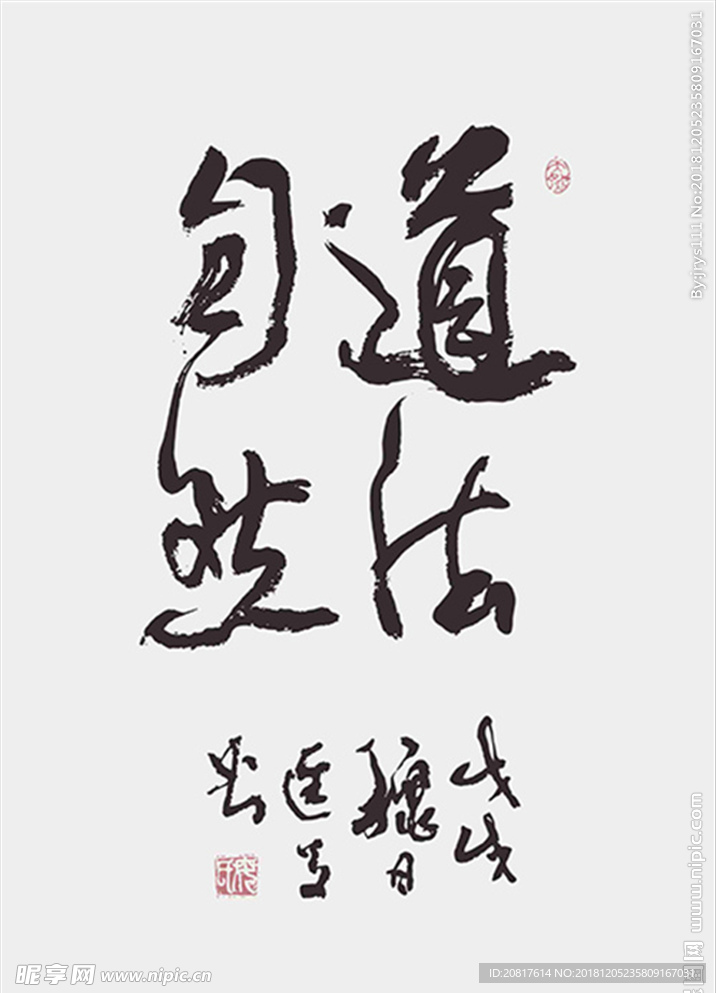 道法
自然
戊戌
By:jrys111 No:20181205235809167031
www.nipic.com
昵图网
昵享网 www.nipic.cn
ID:20817614 NO:20181205235809167031